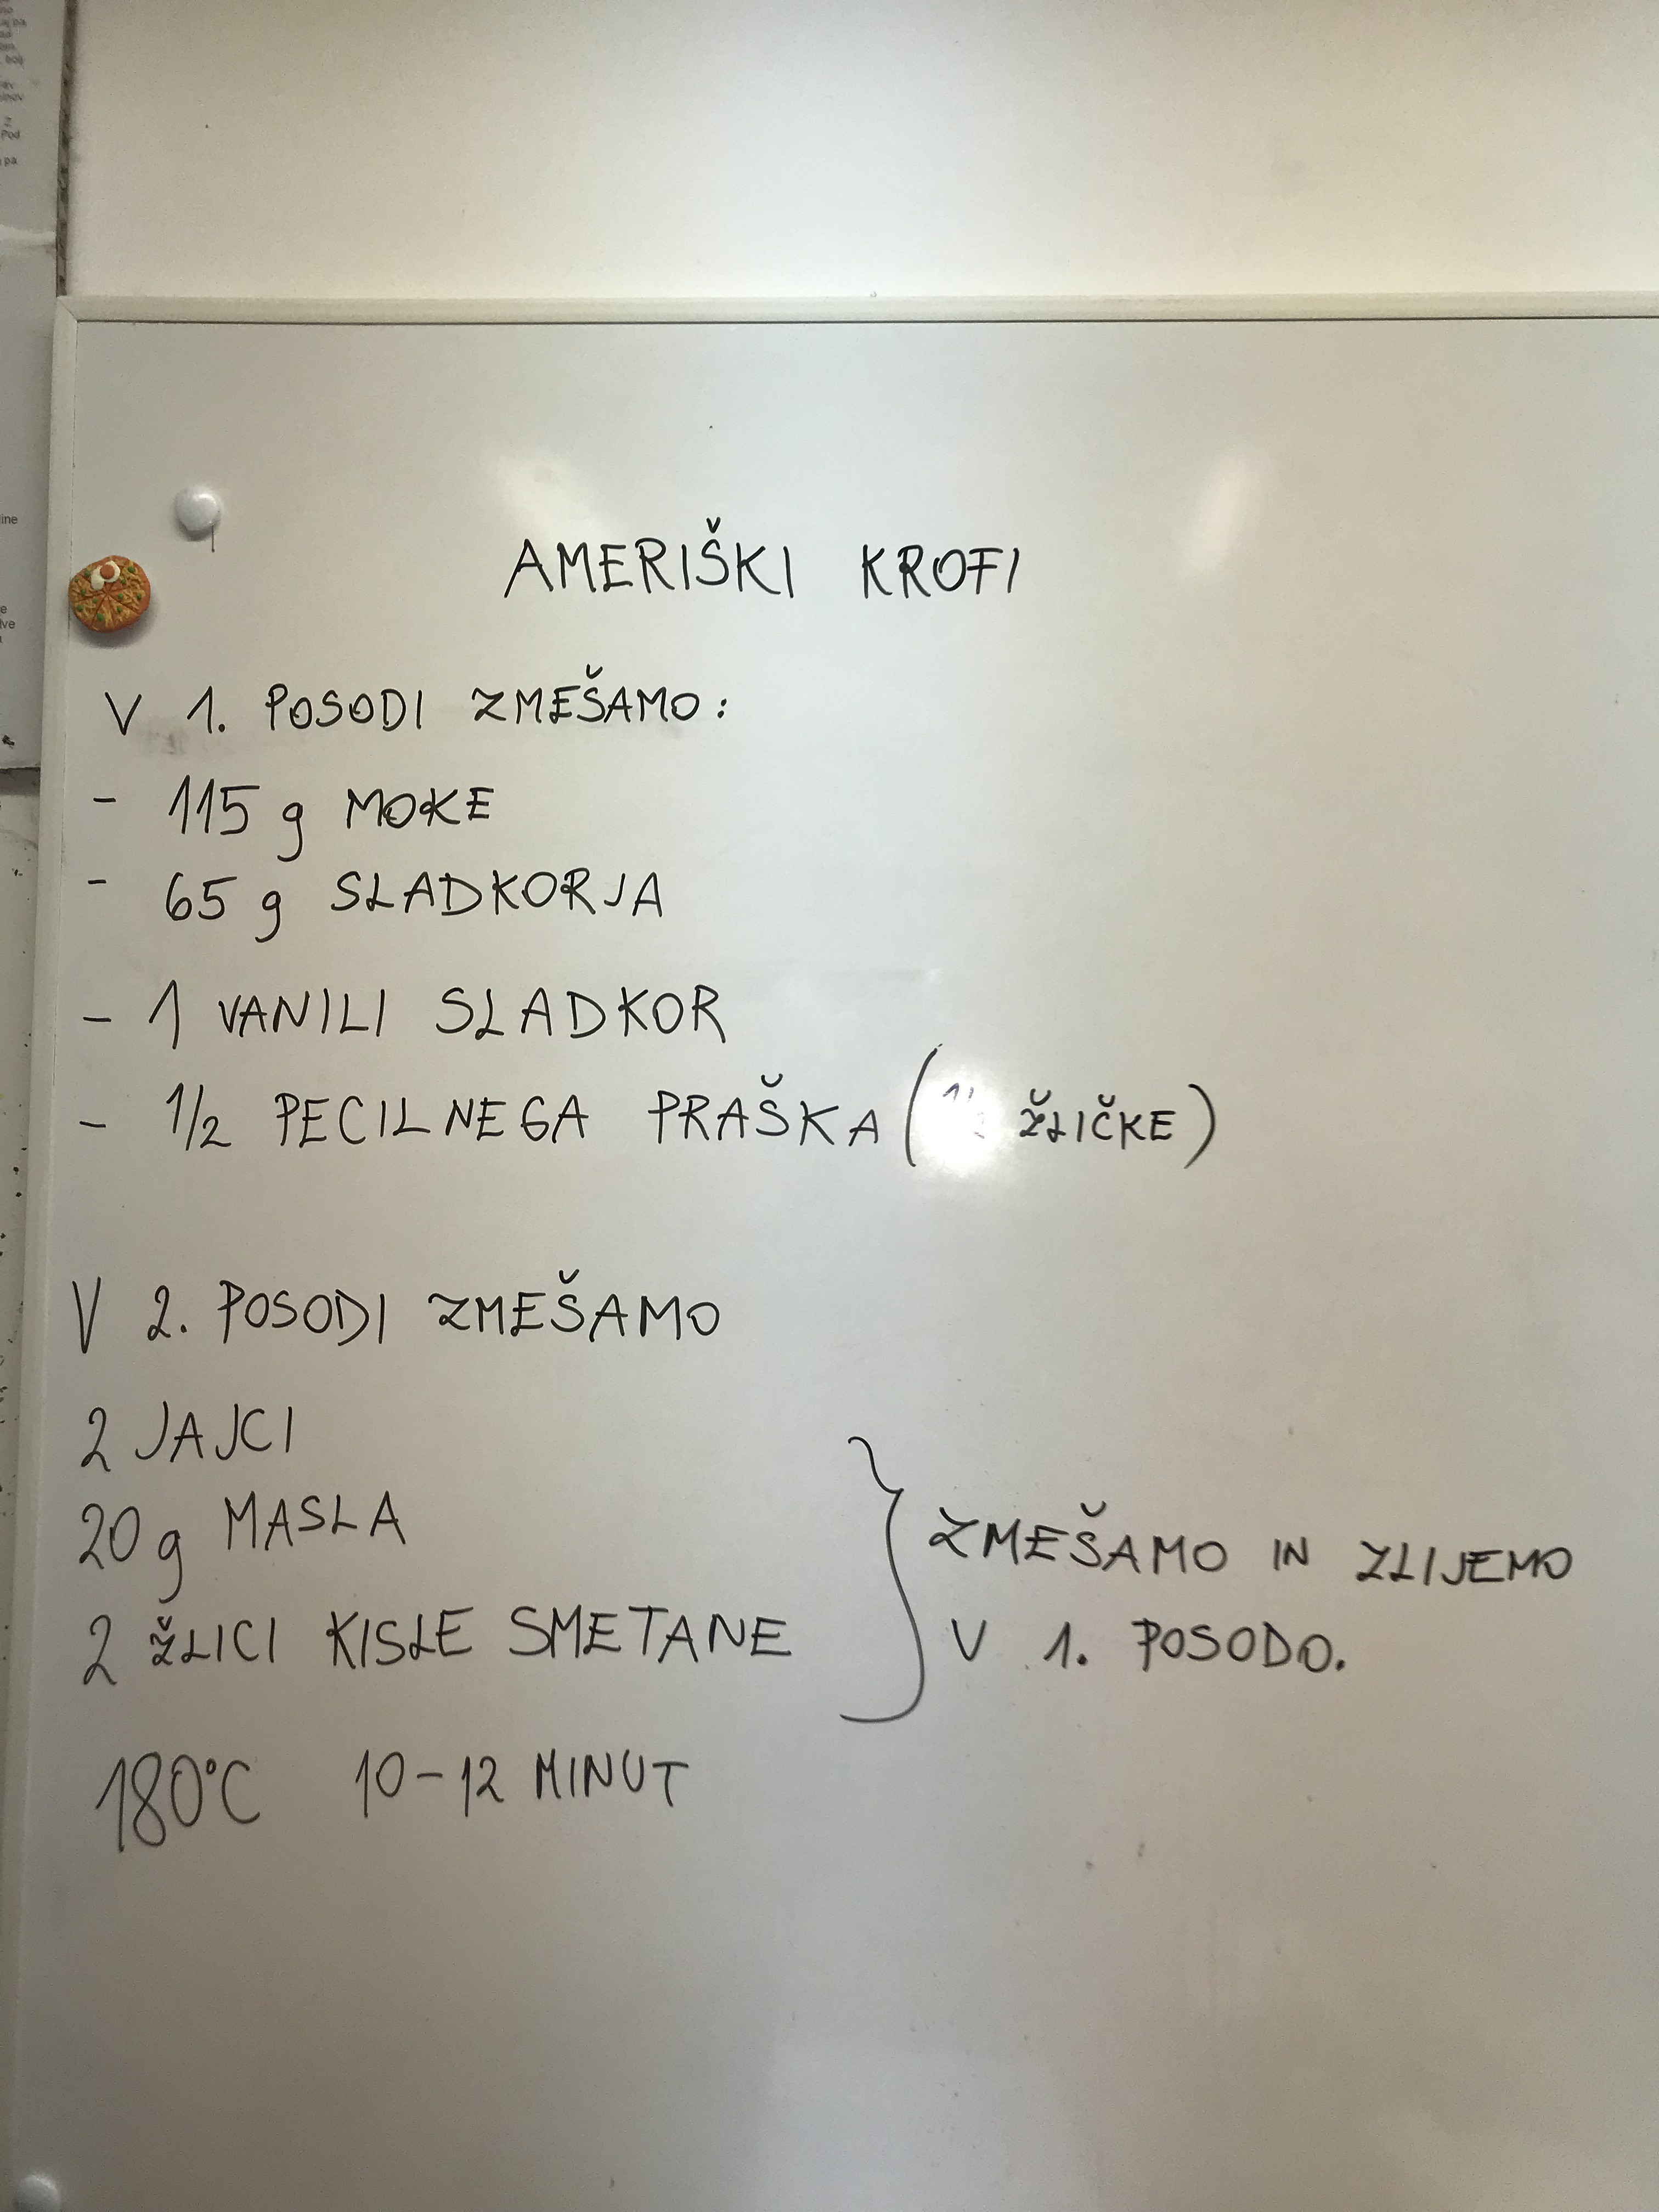 AMERIŠKI KROFI
V 1. POSODI ZMEŠAMO:
- 115 g MOKE
- 65 g SLADKORJA
- 1 VANILI SLADKOR
- 1/2 PECILNEGA PRAŠKA ( ŽLIČKE)
V 2. POSODI ZMEŠAMO
2 JAJCI
20 g MASLA
2 ŽLICI KISLE SMETANE
ZMEŠAMO IN ZLIJEMO
V 1. POSODO.
180°C 10-12 MINUT